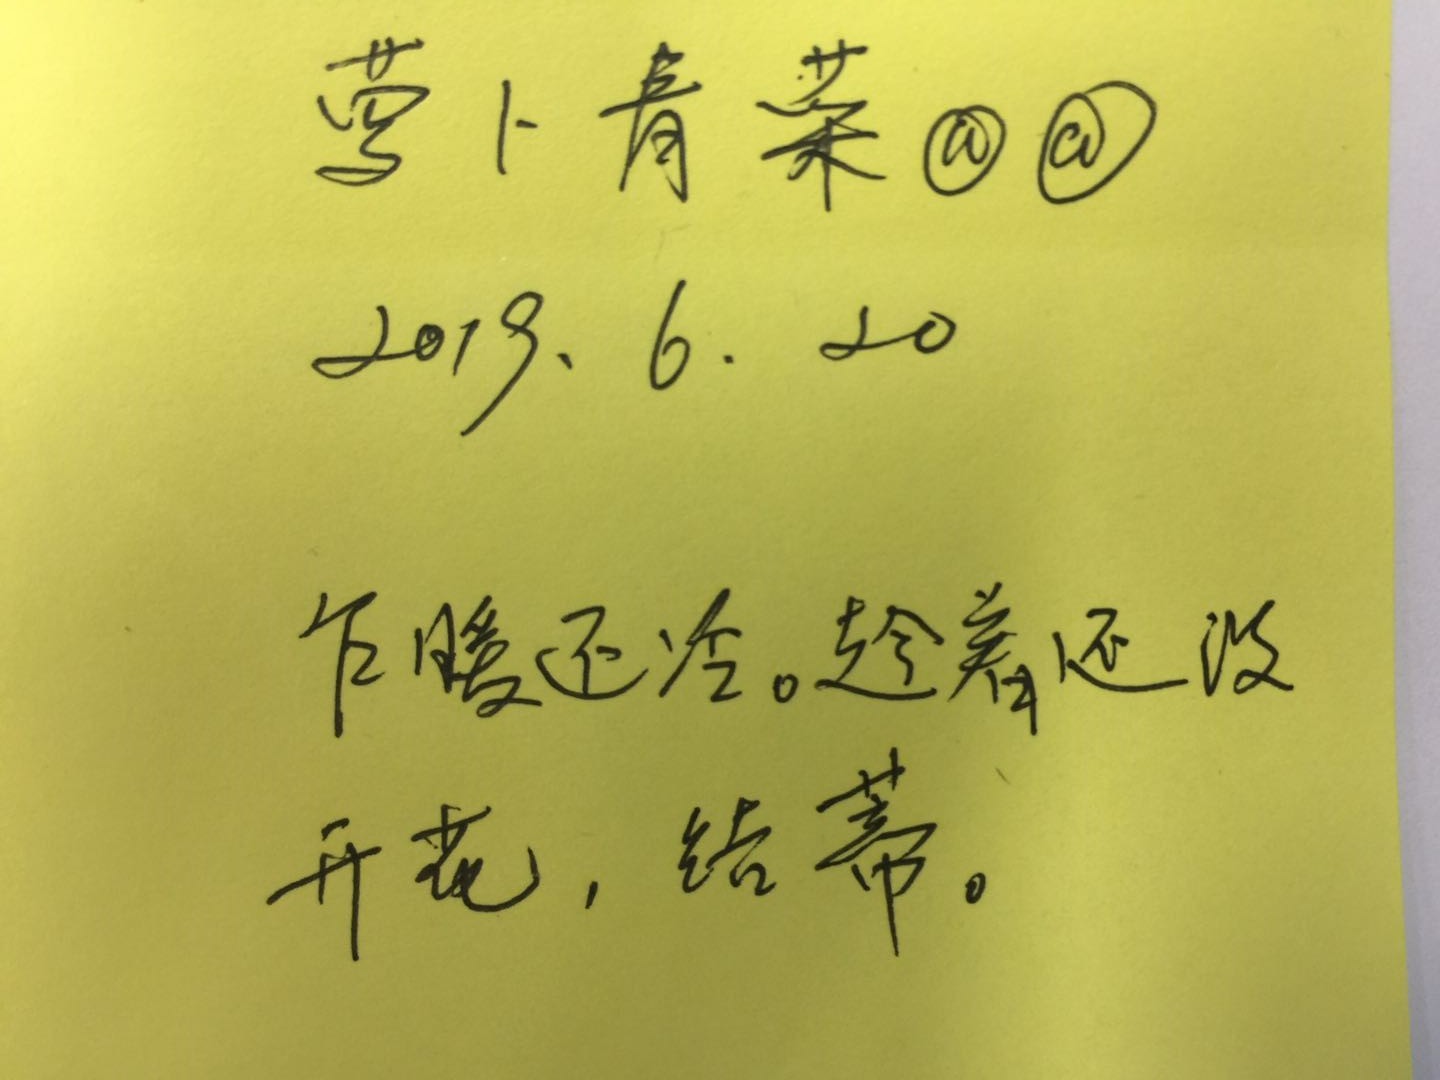 萝卜青菜@@
2019.6.20
乍暖还冷。趁着还没
开花，结蒂。